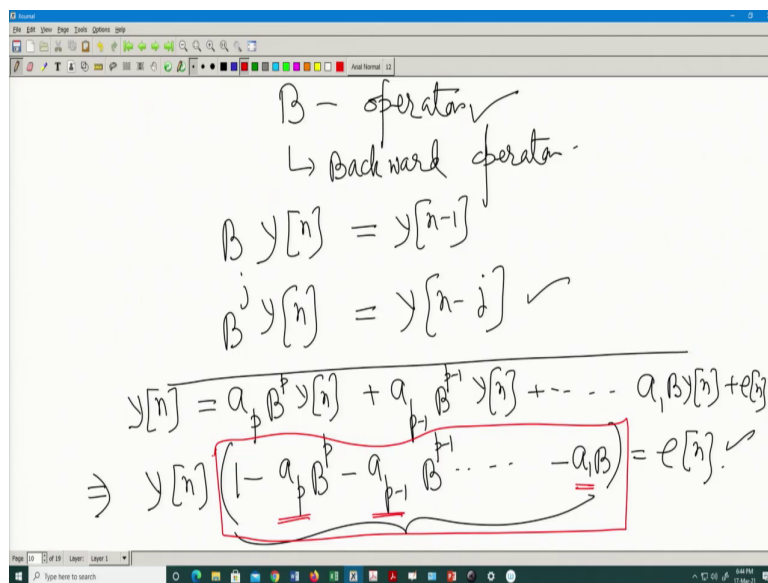 Journal
File Edit View Page Tools Options Help
Arial Normal 12
B - operator ✓
↳ Backward operator.
B y[n] = y[n-1]
B^j y[n] = y[n-j] ✓
y[n] = a_p B^p y[n] + a_{p-1} B^{p-1} y[n] + ------ a_1 B y[n] + e[n]
⇒ y[n] (1 - a_p B^p - a_{p-1} B^{p-1} ------ - a_1 B) = e[n] ✓
Page 10 of 19 Layer: Layer 1
Type here to search
6:44 PM
17-Mar-21